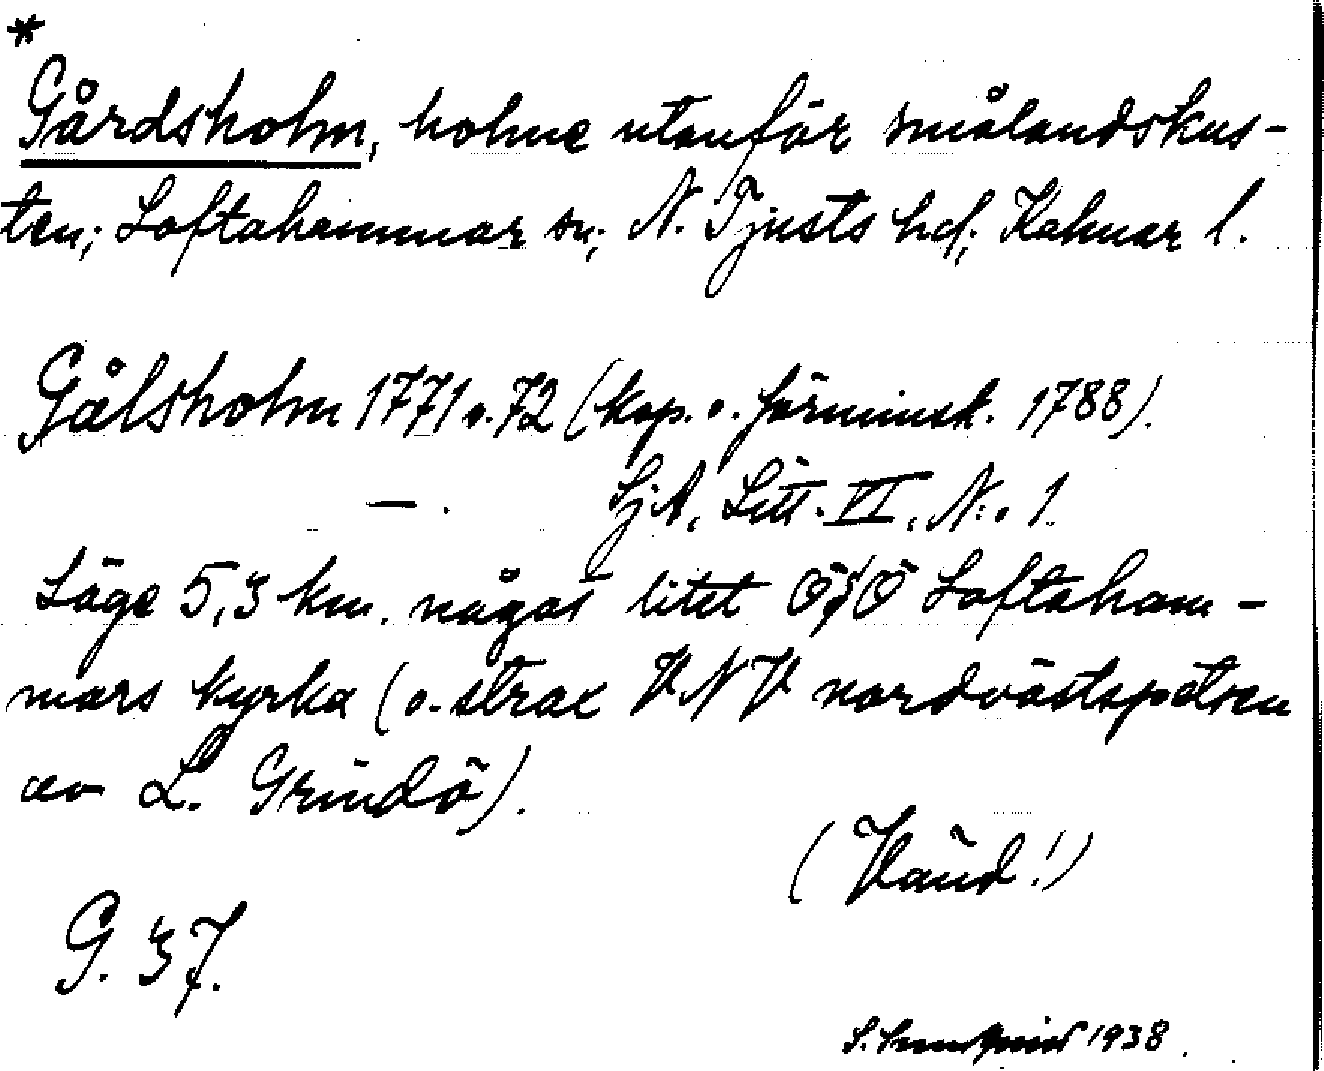 *
Gårdsholm, holme utanför smålandskus-
ten; Loftahammar sn; N. Tjusts hd; Kalmar l.
Gålsholm 1771 o. 72 (kop. o. förminsk. 1788).
— . SjA, Litt. VI, N:o 1.
Läge 5,3 km. något litet OSO Loftaham-
mars kyrka (o. strax VNV nordvästspetsen
av L. Grindö).
(Vänd!)
G. 37.
1938.